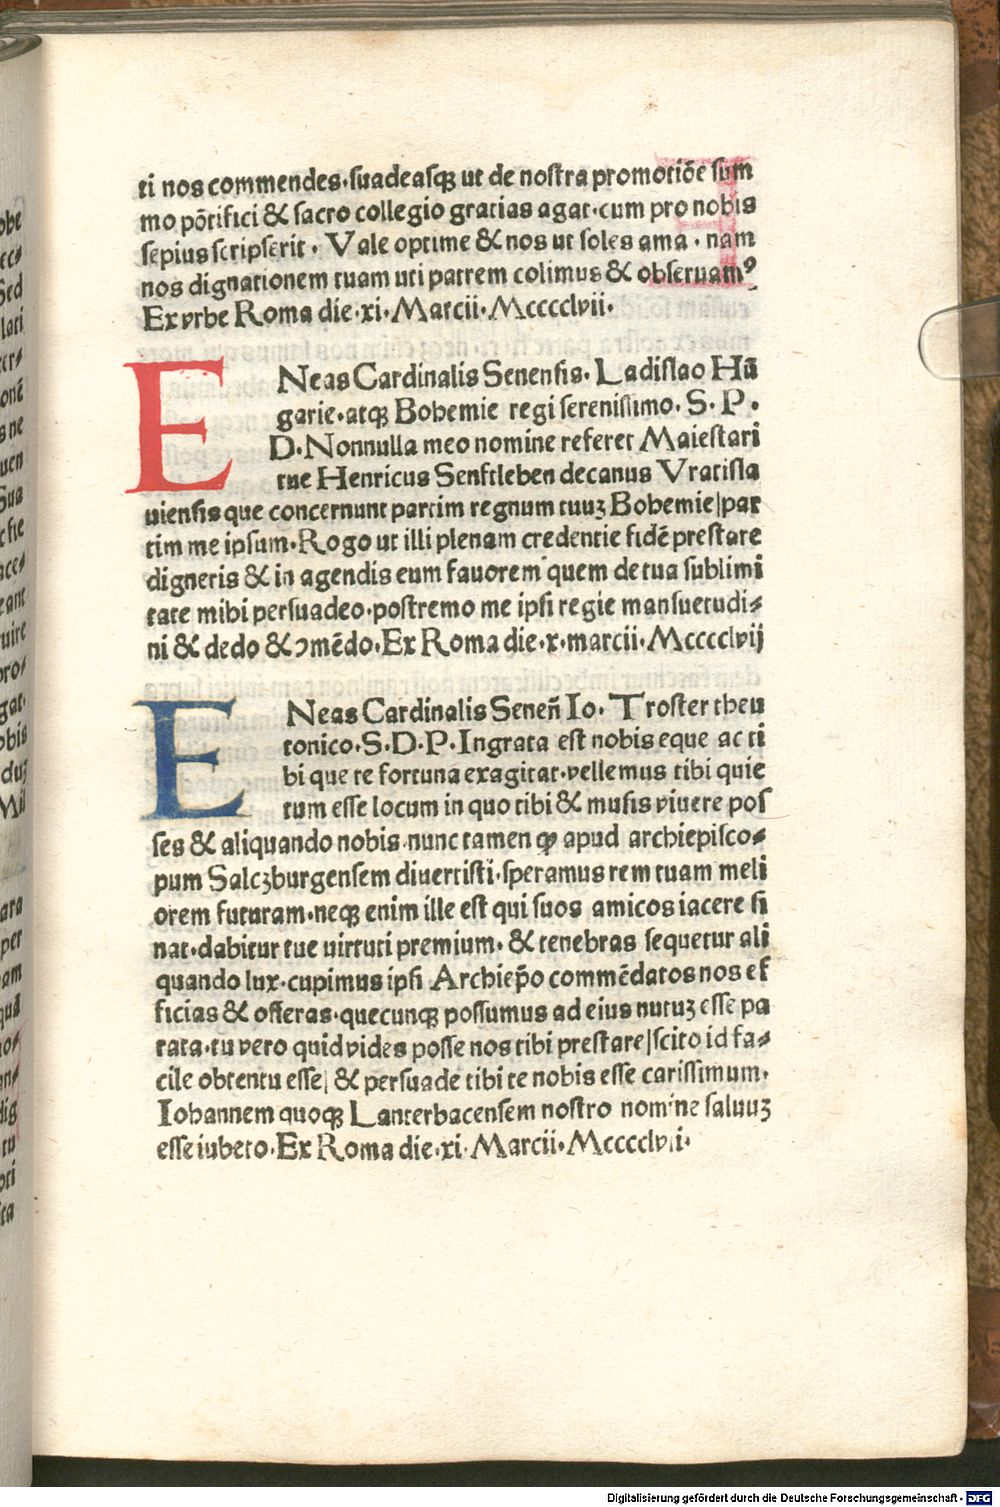 ti nos commendes·suadeasqꝫ ut de nostra promotiōe sum
mo pōtifici & sacro collegio gratias agat·cum pro nobis
sepius scripserit· Vale optime & nos ut soles ama· nam
nos dignationem tuam uti patrem colimus & obseruamꝰ
Ex vrbe Roma die·xi·Marcii·Mcccclvii·
ENeas Cardinalis Senensis· Ladislao Hū
garie·atqꝫ Bohemie regi serenissimo· S· P·
D·Nonnulla meo nomine referet Maiestati
tue Henricus Senftleben decanus Vratisla
uiensis que concernunt partim regnum tuuꝫ Bohemie|par
tim me ipsum·Rogo ut illi plenam credentie fidē prestare
digneris & in agendis eum fauorem quem de tua sublimi
tate mihi persuadeo·postremo me ipsi regie mansuetudi⸗
ni & dedo & ꝯmēdo·Ex Roma die·x·marcii·Mcccclvij
ENeas Cardinalis Seneñ Io· Troster theu
tonico·S·D·P·Ingrata est nobis eque ac ti
bi que te fortuna exagitat·vellemus tibi quie
tum esse locum in quo tibi & musis viuere pos
ses & aliquando nobis·nunc tamen ꝙ apud archiepisco⸗
pum Salcꝫburgensem diuertisti·speramus rem tuam meli
orem futuram·neqꝫ enim ille est qui suos amicos iacere si
nat·dabitur tue uirtuti premium· & tenebras sequetur ali
quando lux·cupimus ipsi Archiep̄o commēdatos nos ef
ficias & offeras·quecunqꝫ possumus ad eius nutuꝫ esse pa
rata·tu vero quid vides posse nos tibi prestare|scito id fa⸗
cile obtentu esse| & persuade tibi te nobis esse carissimum·
Iohannem quoqꝫ Lanterbacensem nostro nomine saluuꝫ
esse iubeto·Ex Roma die·xi·Marcii·Mcccclvii·
Digitalisierung gefördert durch die Deutsche Forschungsgemeinschaft - DFG